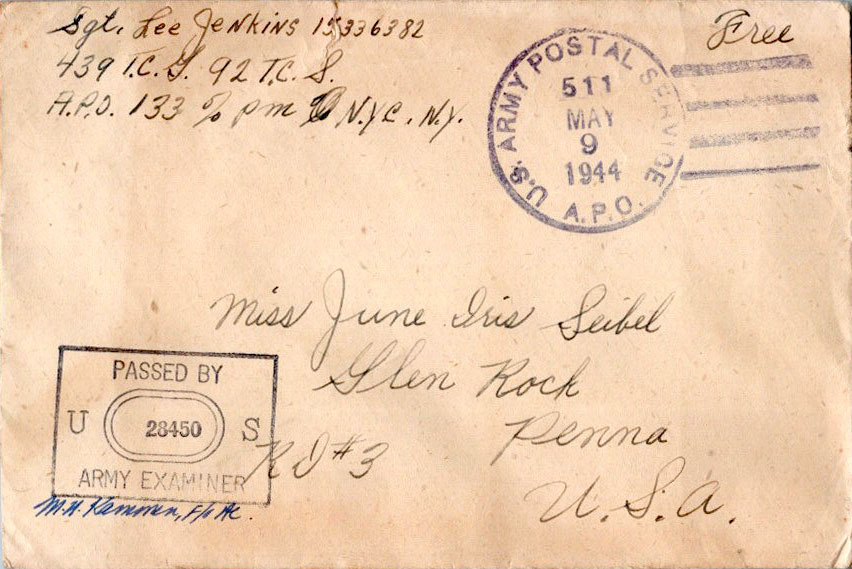 Sgt. Lee Jenkins 15336382
439 T.C.G. 92 T.C.S.
A.P.O. 133 % pm N.Y.C., N.Y.
Free
U.S. ARMY POSTAL SERVICE
511
MAY
9
1944
A.P.O.
Miss June Iris Seibel
Glen Rock
RD #3 Penna
U.S.A.
PASSED BY
U 28450 S
ARMY EXAMINER